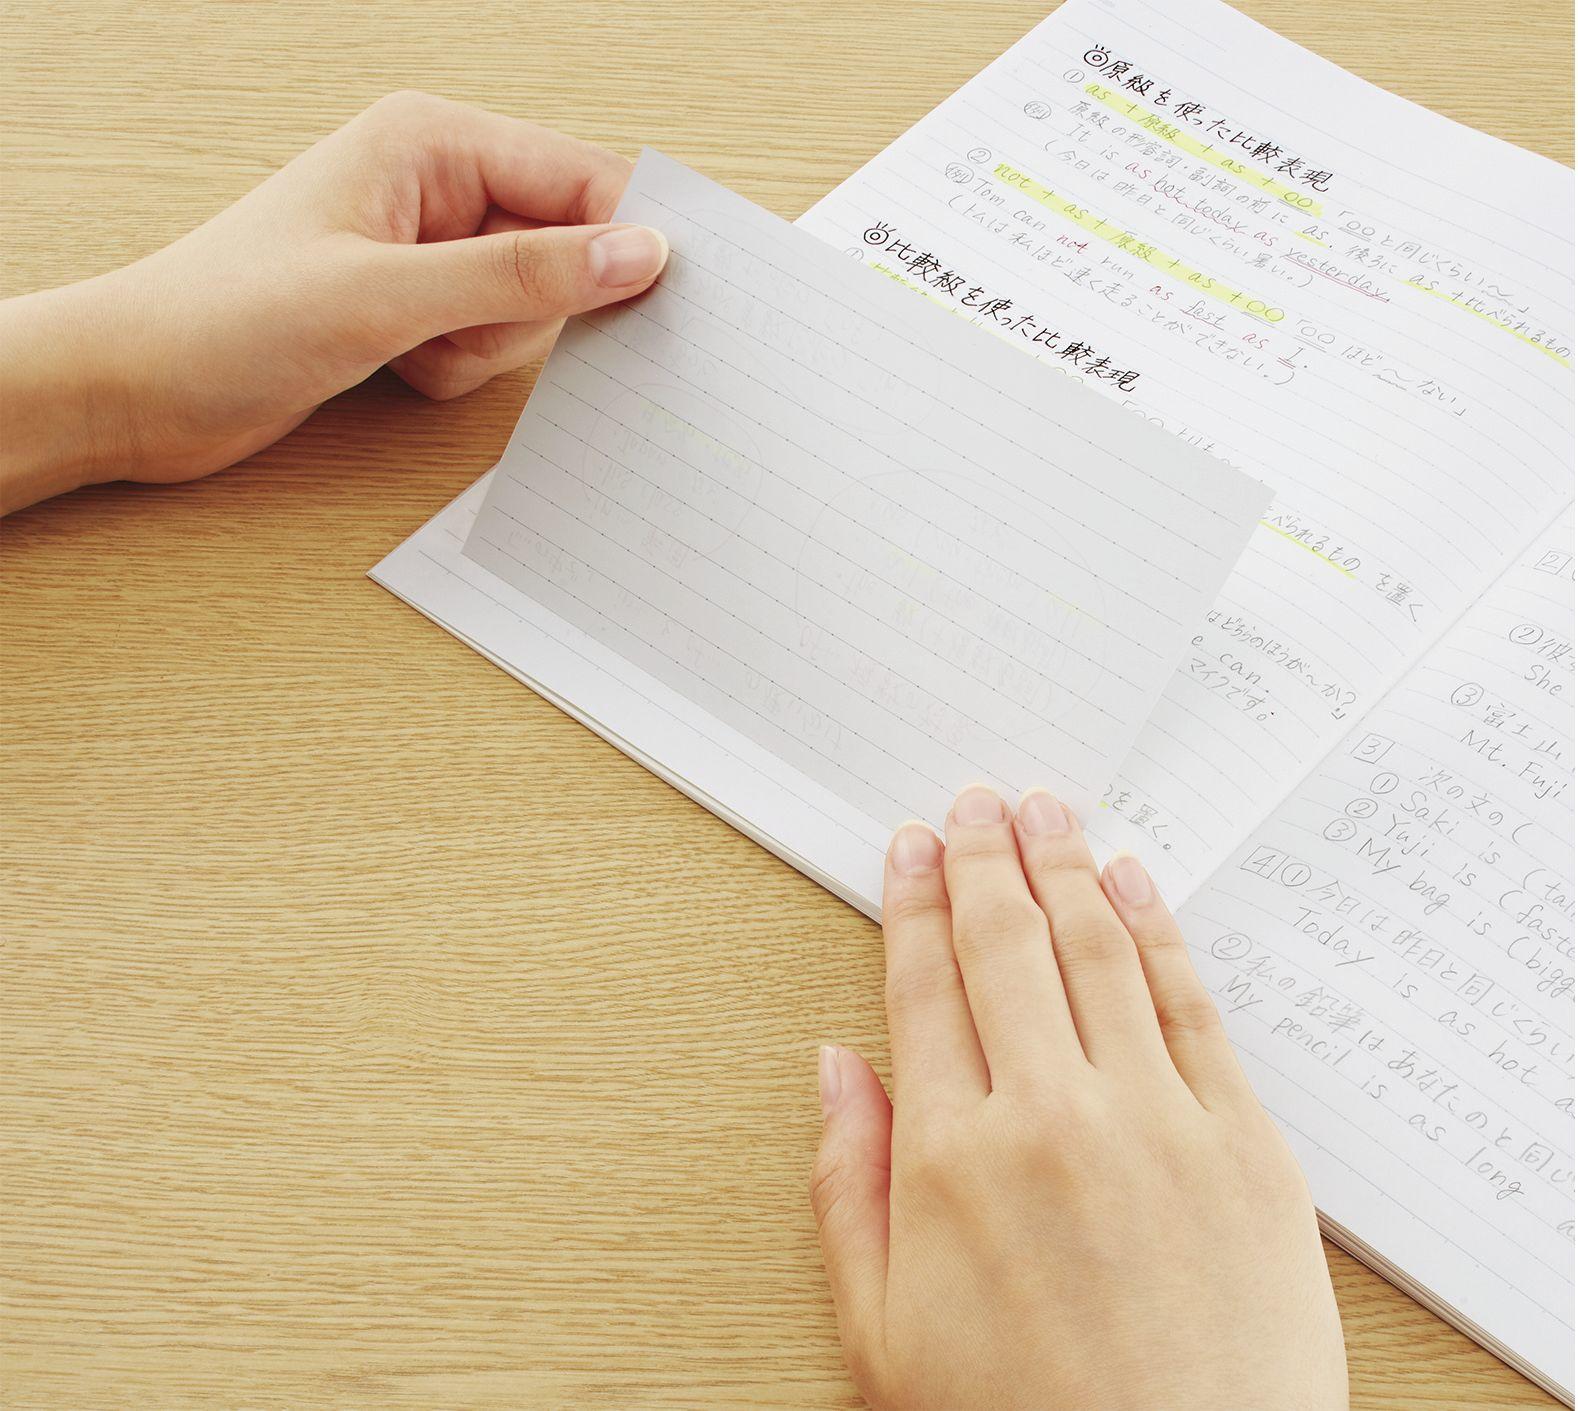 ◎原級を使った比較表現
① as + 原級 + as + ○○ 「○○と同じくらい〜」
原級の形容詞・副詞の前に as. 後ろに as + 比べられるもの
(例) It is as hot today as yesterday.
(今日は昨日と同じくらい暑い。)
② not + as + 原級 + as + ○○ 「○○ほど〜ない」
(例) Tom can not run as fast as I.
(トムは私ほど速く走ることができない。)
◎比較級を使った比較表現
①
べられるもの を置く
はどちらのほうが〜か?」
e can.
マイクです。
のを置く。
2
②彼
She
③富士山
Mt. Fuji
3 次の文の(
① Saki is (tal
② Yuji is (faste
③ My bag is (bigg
4 ①今日は昨日と同じくらい
Today is as hot a
②私の鉛筆はあなたのと同じ
My pencil is as long a